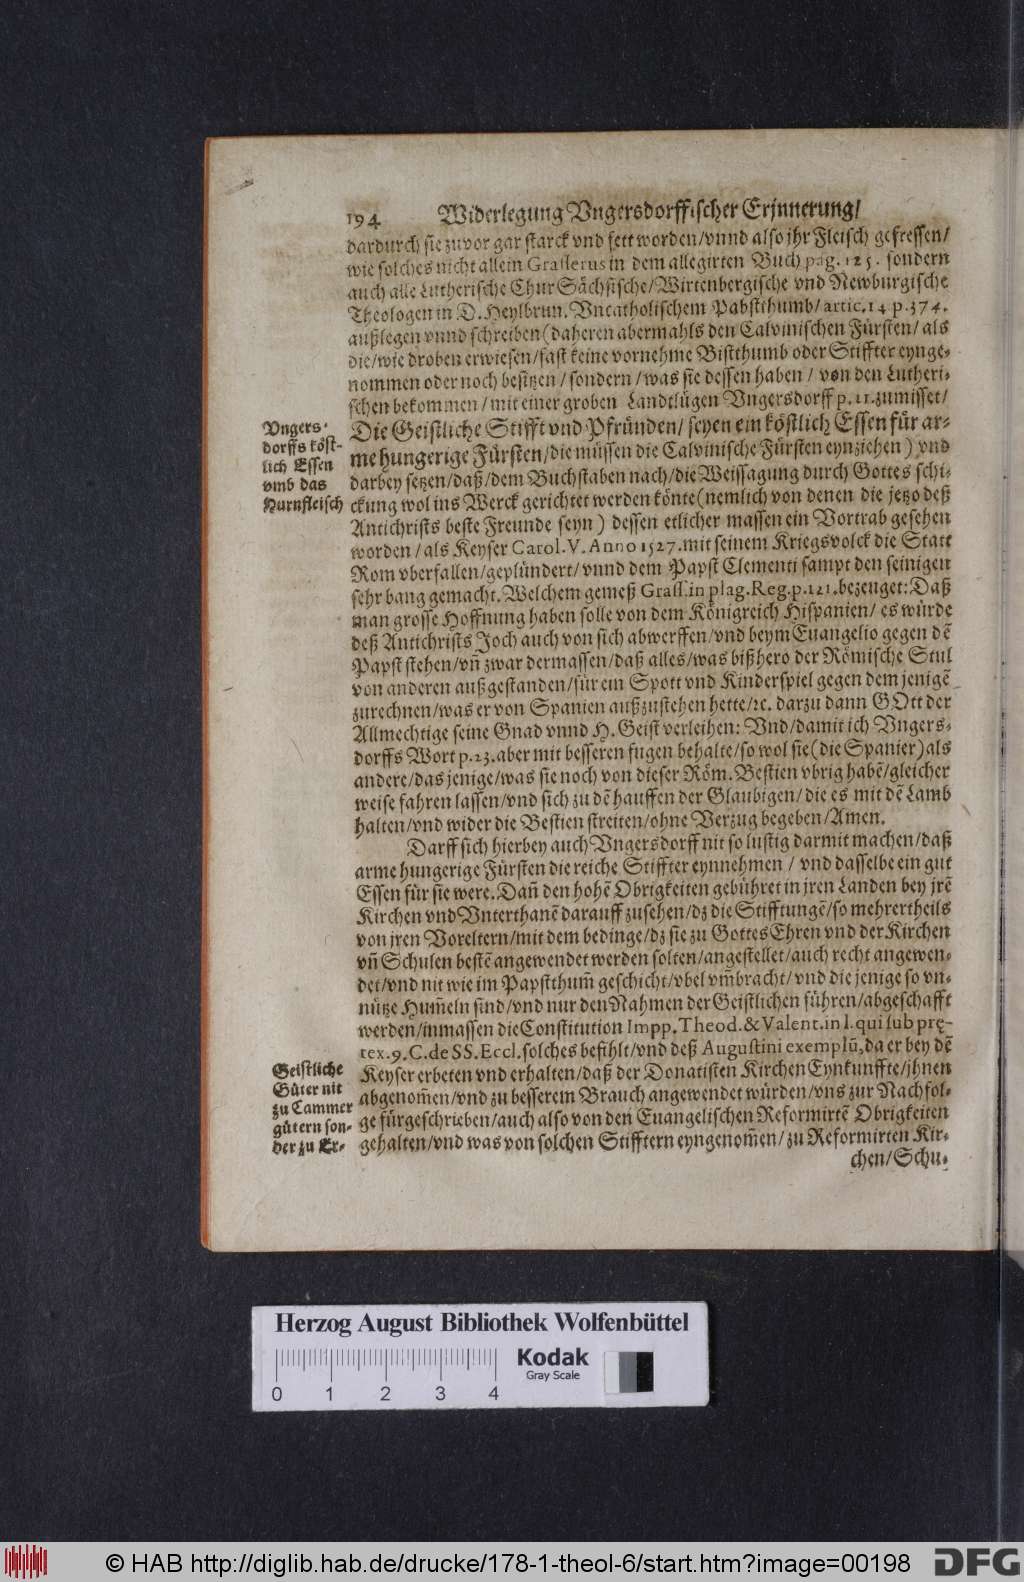 194 Widerlegung Vngersdorffischer Erjnnerung/
dardurch sie zuvor gar starck vnd fett worden/vnnd also jhr Fleisch gefressen/
wie solches nicht allein Grasserus in dem allegirten Buch pag. 125. sondern
auch alle Lutherische Chur Sächsische/Wirtenbergische vnd Newburgische
Theologen in D. Heylbrun. Vncatholischem Pabstthumb/artic. 14 p. 374.
außlegen vnnd schreiben (daheren abermahls den Calvinischen Fürsten/ als
die/wie droben erwiesen/fast keine vornehme Bistthumb oder Stiffter eynge-
nommen oder noch besitzen/sondern/was sie dessen haben/ von den Lutheri-
schen bekommen/mit einer groben Landtlügen Vngersdorff p. 11. zumisset/
Die Geistliche Stifft vnd Pfründen/ seyen ein köstlich Essen für ar-
me hungerige Fürsten/die müssen die Calvinische Fürsten eynziehen) vnd
darbey setzen/daß/dem Buchstaben nach/die Weissagung durch Gottes schi-
ckung wol ins Werck gerichtet werden könte (nemlich von denen die jetzo deß
Antichrists beste Freunde seyn) dessen etlicher massen ein Vortrab gesehen
worden/als Keyser Carol. V. Anno 1527. mit seinem Kriegsvolck die Statt
Rom vberfallen/geplündert/vnnd dem Papst Clementi sampt den seinigen
sehr bang gemacht. Welchem gemeß Grass. in plag. Reg. p. 121. bezeuget: Daß
man grosse Hoffnung haben solle von dem Königreich Hispanien/ es würde
deß Antichrists Joch auch von sich abwerffen/vnd beym Euangelio gegen dē
Papst stehen/vñ zwar dermassen/daß alles/was bißhero der Römische Stul
von anderen außgestanden/für ein Spott vnd Kinderspiel gegen dem jenigē
zurechnen/was er von Spanien außzustehen hette/ꝛc. darzu dann GOtt der
Allmechtige seine Gnad vnnd H. Geist verleihen: Vnd/damit ich Vngers-
dorffs Wort p. 23. aber mit besseren fugen behalte/so wol sie (die Spanier) als
andere/das jenige/was sie noch von dieser Röm. Bestien vbrig habē/gleicher
weise fahren lassen/vnd sich zu dē hauffen der Glaubigen/die es mit dē Lamb
halten/vnd wider die Bestien streiten/ohne Verzug begeben/Amen.
Darff sich hierbey auch Vngersdorff nit so lustig darmit machen/daß
arme hungerige Fürsten die reiche Stiffter eynnehmen/ vnd dasselbe ein gut
Essen für sie were. Dañ den hohē Obrigkeiten gebühret in jren Landen bey jrē
Kirchen vnd Vnterthanē darauff zusehen/dz die Stifftungē/so mehrertheils
von jren Voreltern/mit dem bedinge/dz sie zu Gottes Ehren vnd der Kirchen
vñ Schulen bestē angewendet werden solten/angestellet/auch recht angewen-
det/vnd nit wie im Papstthum̃ geschicht/vbel vm̃bracht/vnd die jenige so vn-
nütze Hum̃eln sind/vnd nur den Nahmen der Geistlichen führen/abgeschafft
werden/inmassen die Constitution Impp. Theod. & Valent. in l. qui sub prę-
tex. 9. C. de SS. Eccl. solches befihlt/vnd deß Augustini exemplū, da er bey dē
Keyser erbeten vnd erhalten/daß der Donatisten Kirchen Eynkunffte/jhnen
abgenom̃en/vnd zu besserem Brauch angewendet würden/vns zur Nachfol-
ge fürgeschrieben/auch also von den Euangelischen Reformirtē Obrigkeiten
gehalten/vnd was von solchen Stifftern eyngenom̃en/zu Reformirten Kir-
chen/Schu-
Vngers-
dorffs köst-
lich Essen
vmb das
Hurnfleisch
Geistliche
Güter nit
zu Cammer
gütern son-
der zu Er-
Herzog August Bibliothek Wolfenbüttel
Kodak
Gray Scale
0 1 2 3 4
© HAB http://diglib.hab.de/drucke/178-1-theol-6/start.htm?image=00198
DFG